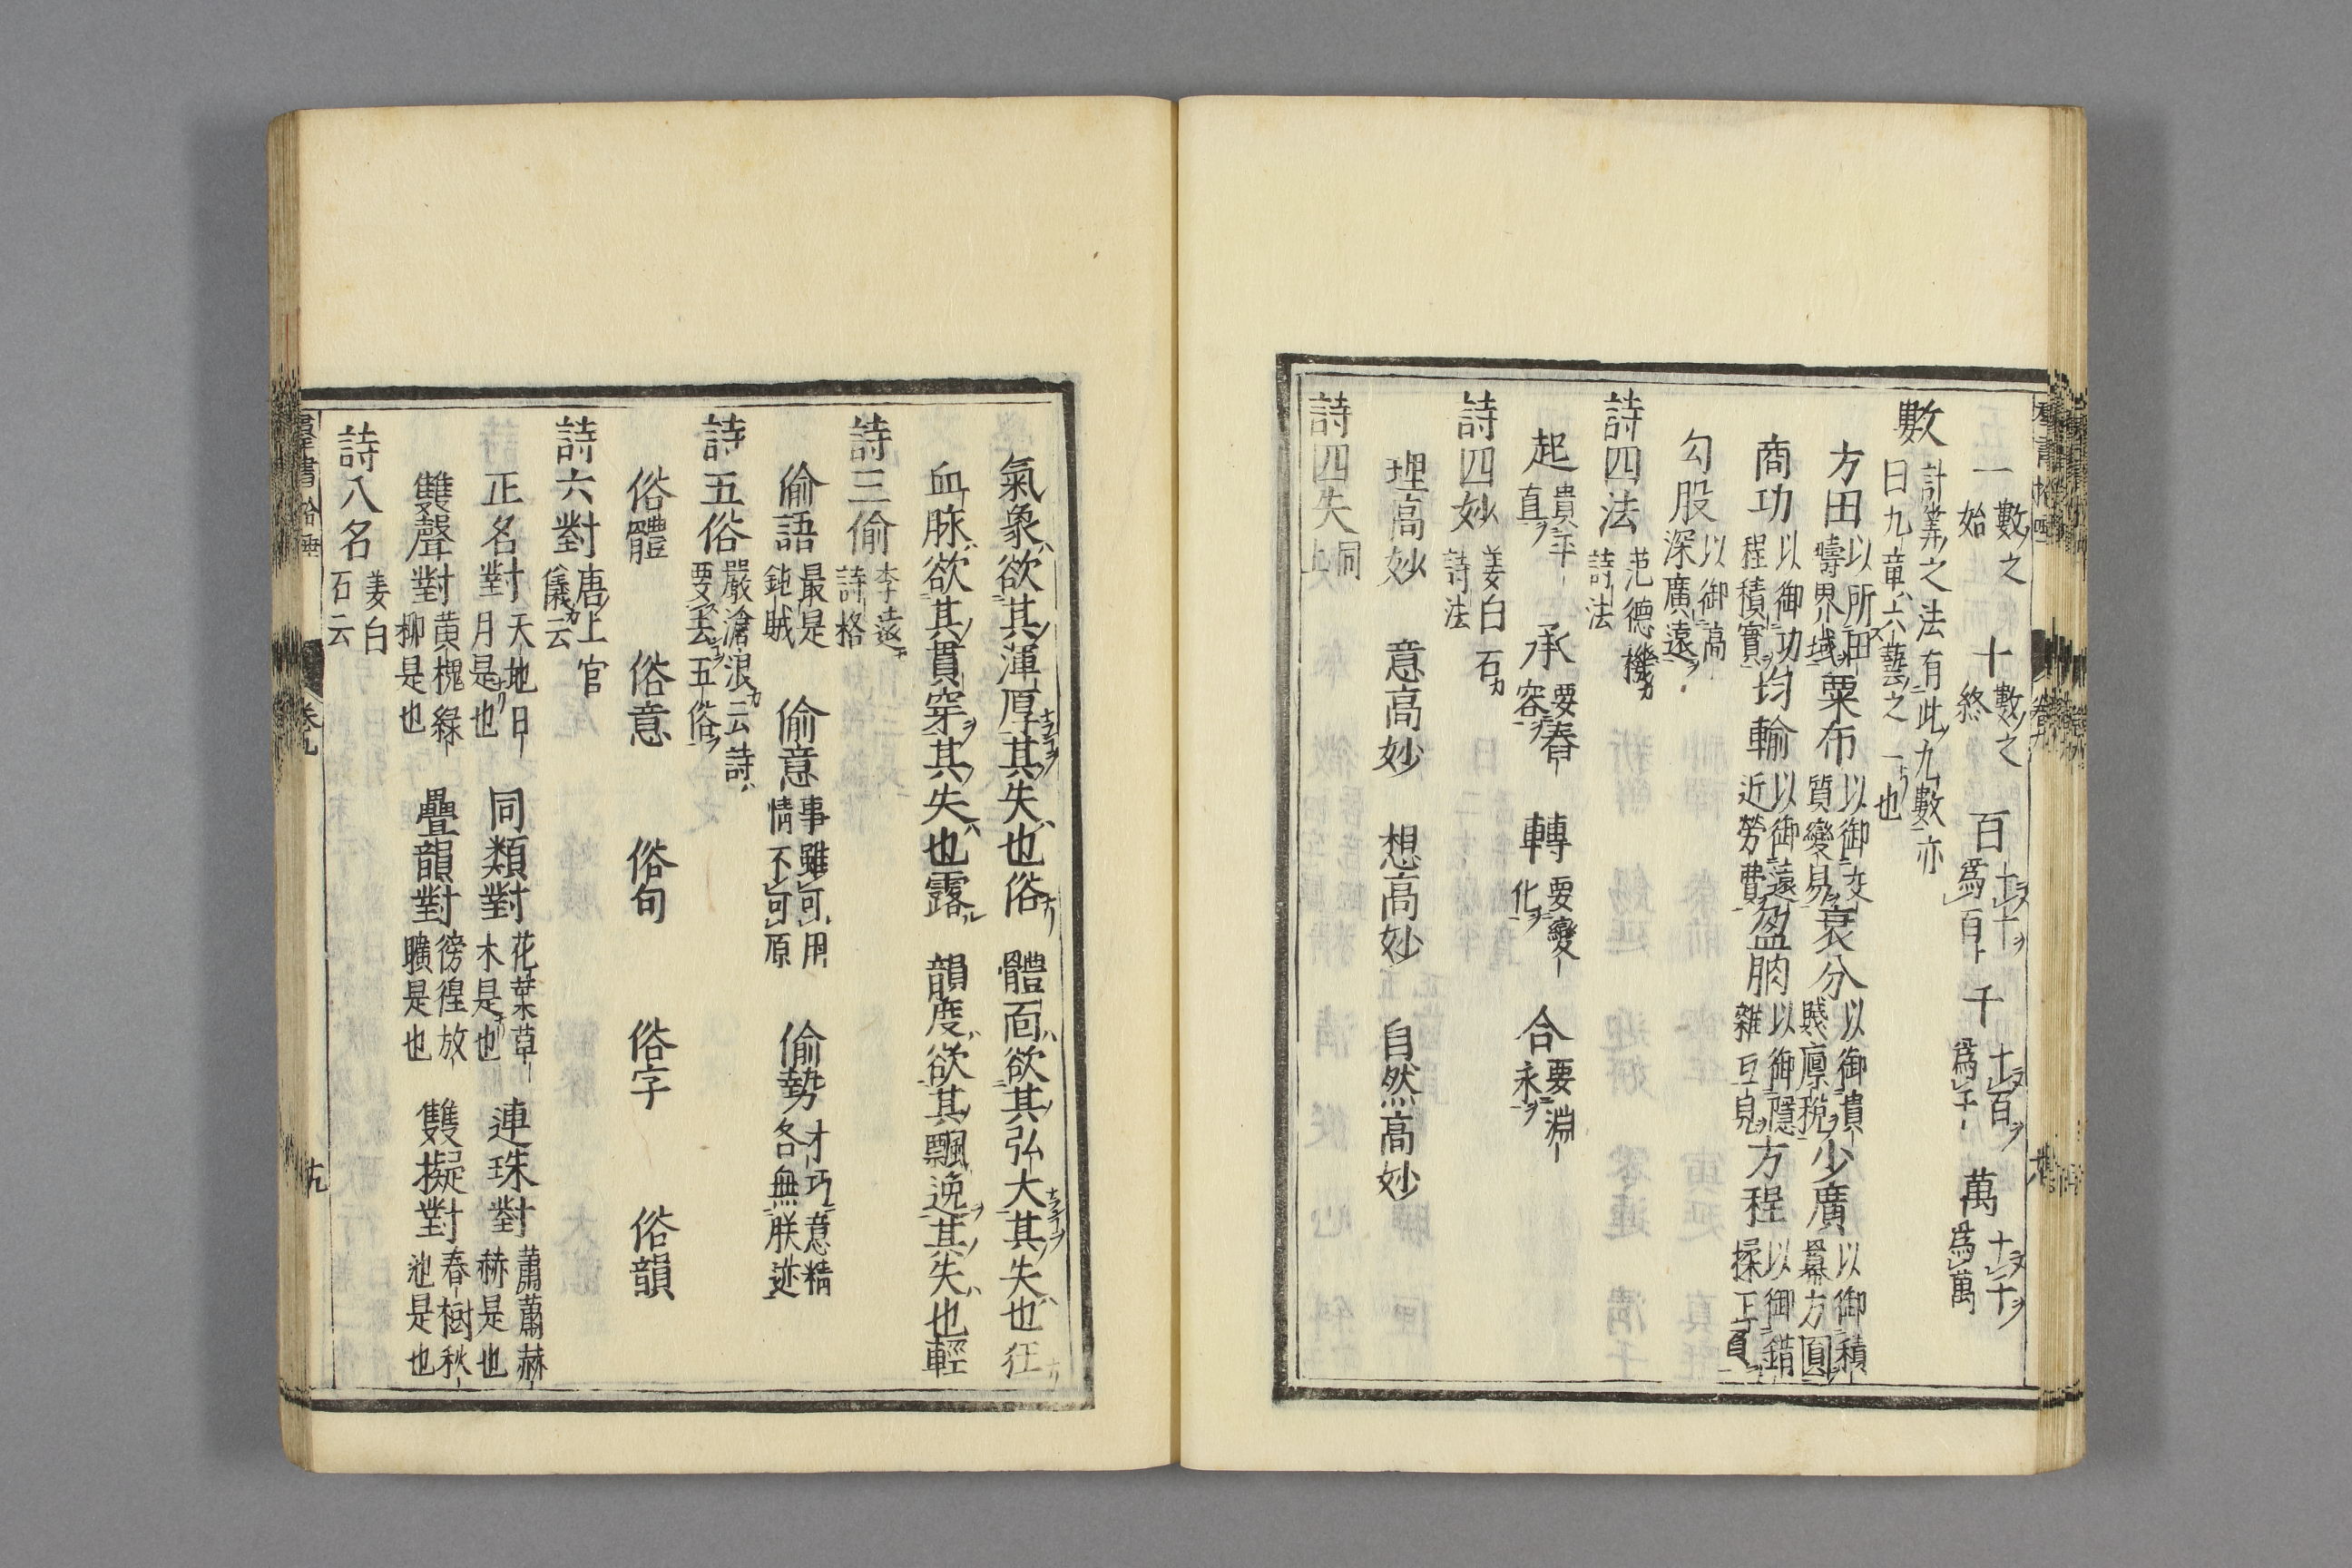 一 數之始 十 數之終 百 十十爲百 千 十百爲千 萬 十千爲萬
數 計筭之法有此九數亦曰九章六藝之一也
方田 以御田疇界域 粟布 以御交質變易 衰分 以御貴賤廪稅 少廣 以御積冪方圓
商功 以御功程積實 均輸 以御遠近勞費 盈朒 以御隱雜互見 方程 以御錯揉正負
勾股 以御高深廣遠
詩四法 范德機詩法
起 貴平直 承 要舂容 轉 要變化 合 要淵永
詩四妙 姜白石詩法
理高妙 意高妙 想高妙 自然高妙
詩四失 同上
氣象欲其渾厚其失也俗 體面欲其弘大其失也狂
血脉欲其貫穿其失也露 韻度欲其飄逸其失也輕
詩三偷 李遠詩格
偷語 最是鈍賊 偷意 事雖可用情不可原 偷勢 才巧意精各無朕迹
詩五俗 嚴滄浪云詩要去五俗
俗體 俗意 俗句 俗字 俗韻
詩六對 唐上官儀云
正名對 天地日月是也 同類對 花葉草木是也 連珠對 蕭蕭赫赫是也
雙聲對 黄槐綠柳是也 疊韻對 徬徨放曠是也 雙擬對 春樹秋池是也
詩八名 姜白石云